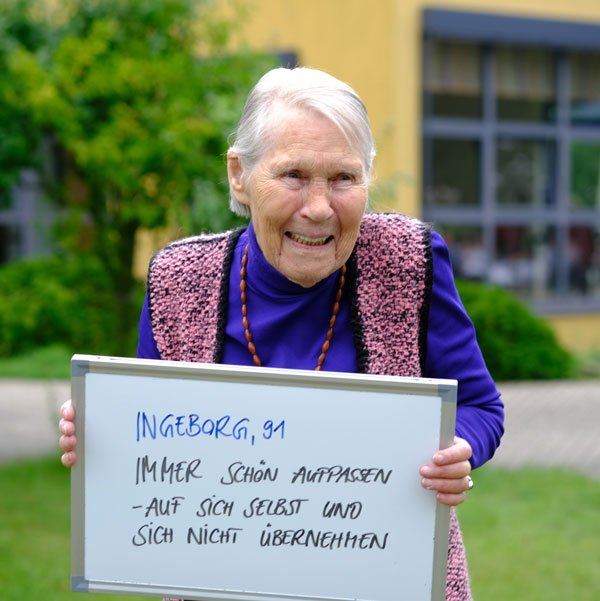 INGEBORG, 91
IMMER SCHÖN AUFPASSEN
- AUF SICH SELBST UND
SICH NICHT ÜBERNEHMEN